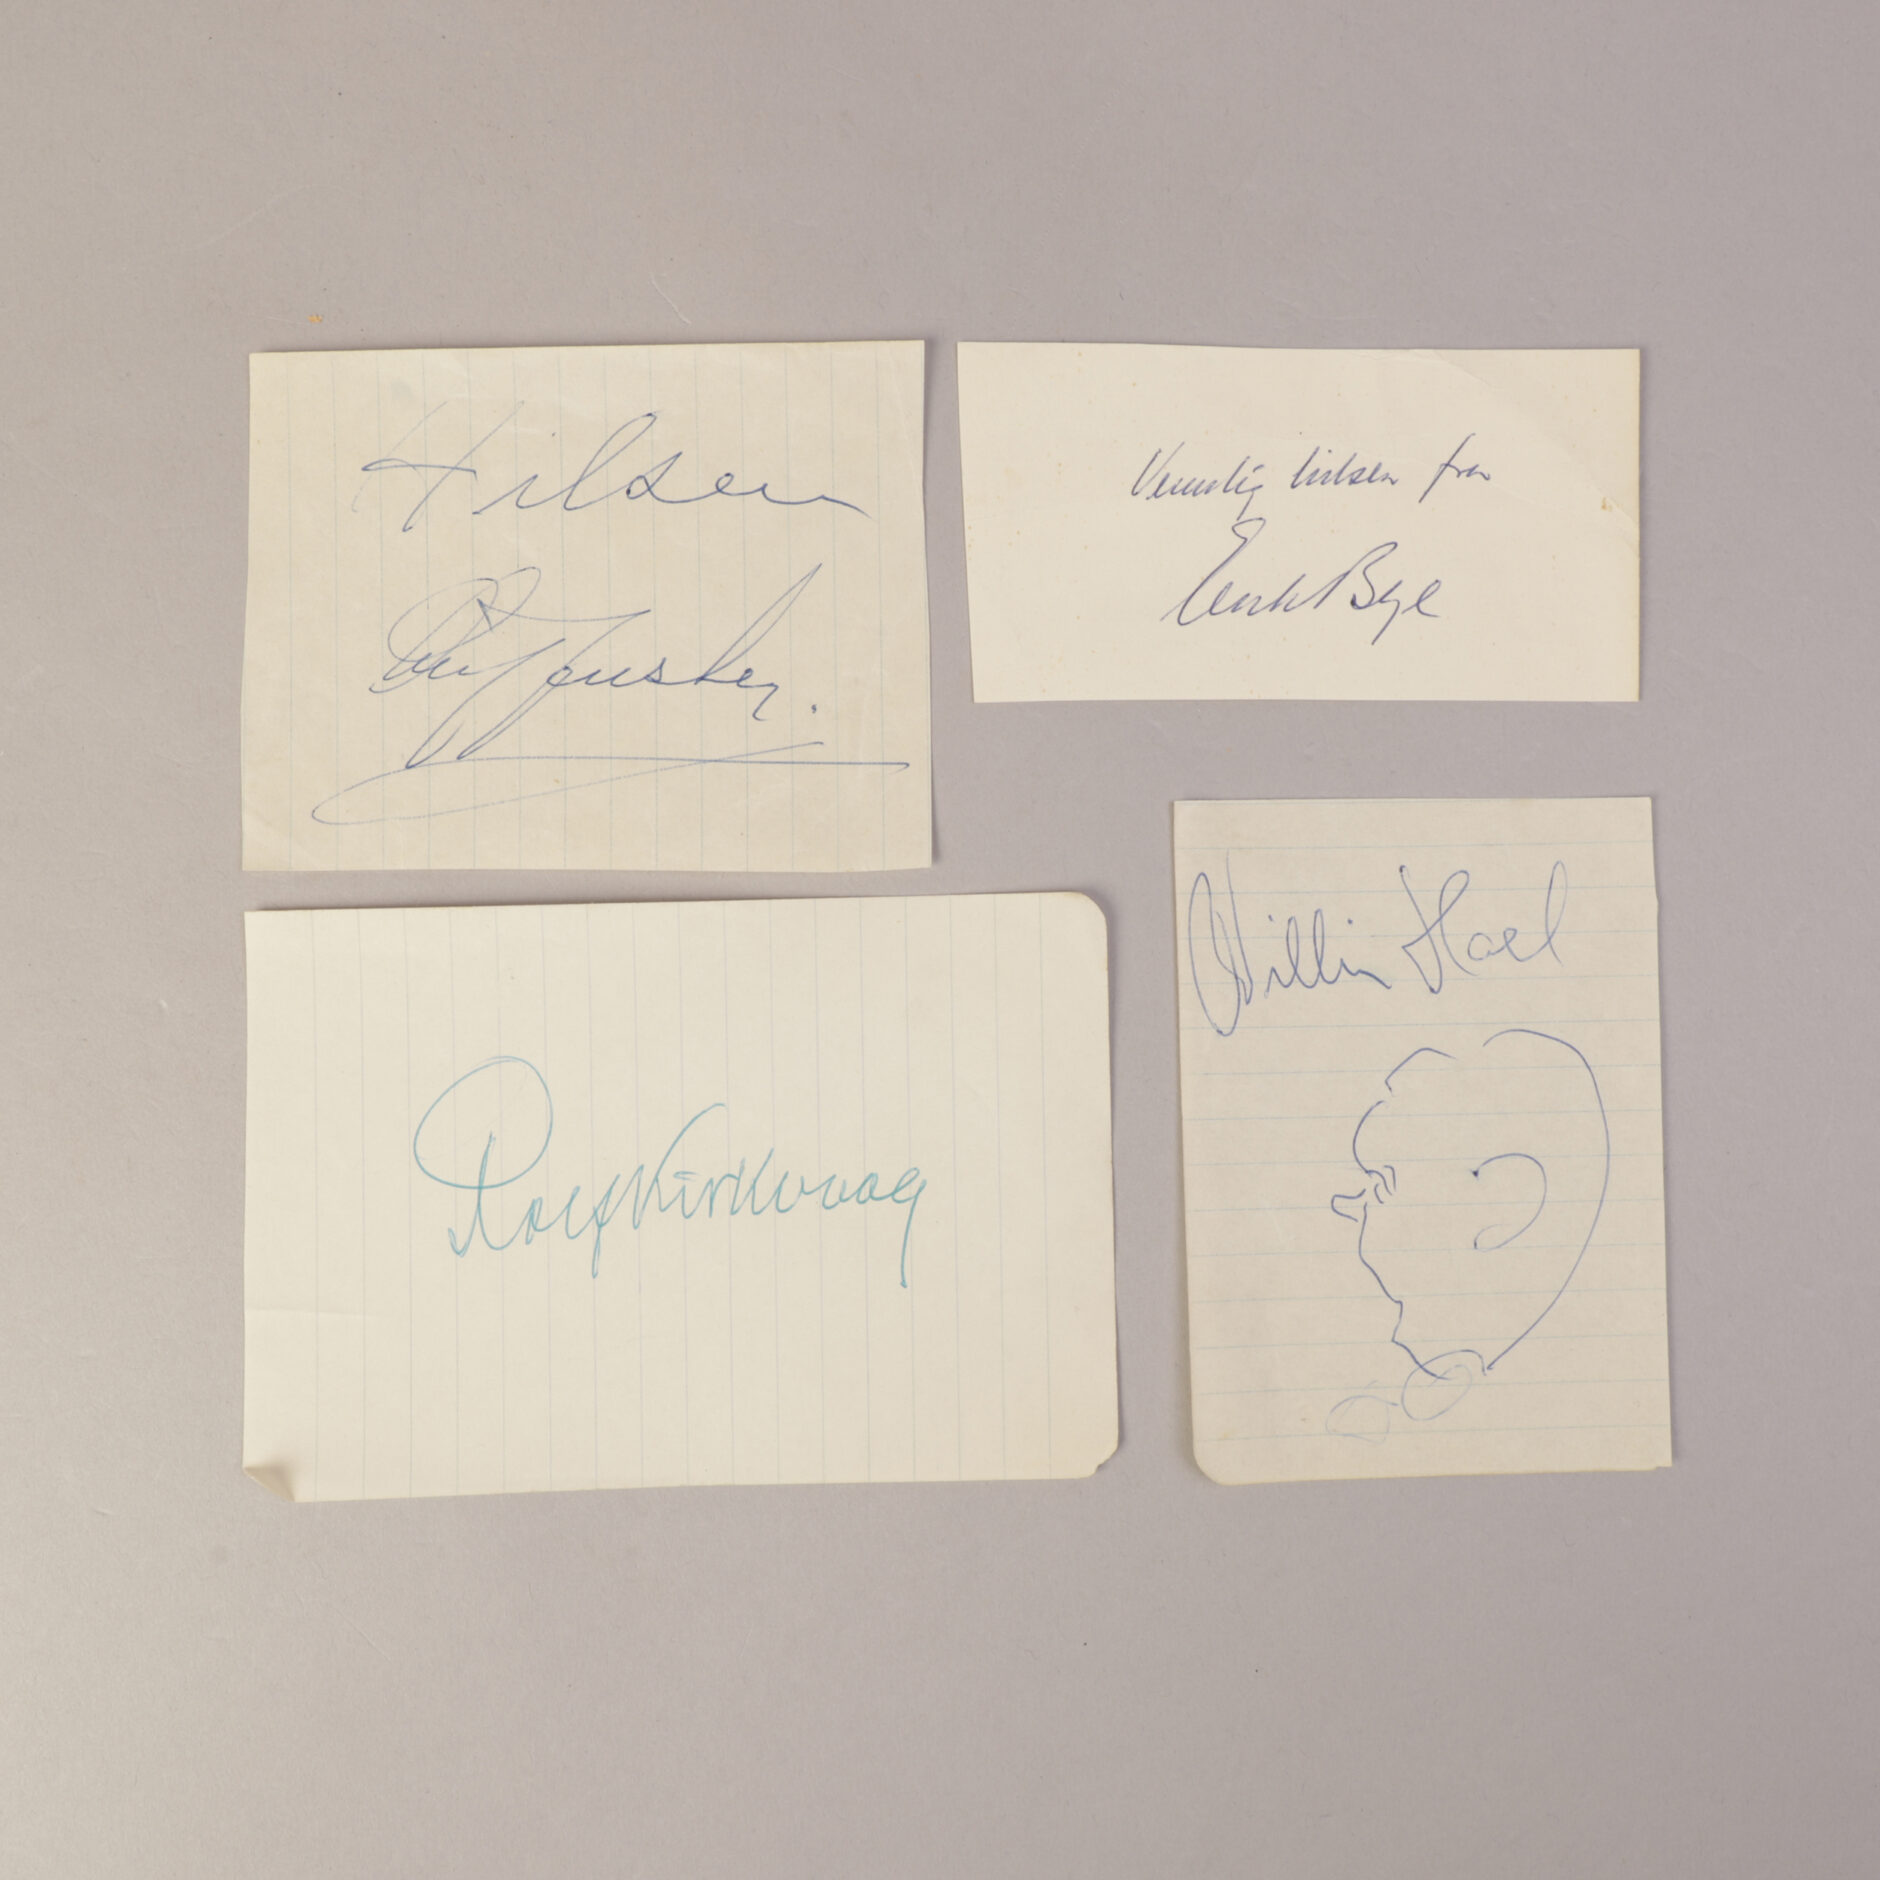 Hilsen
Vennlig hilsen fra
Erik Bye
Rolf Kirkvaag
Willie Hoel